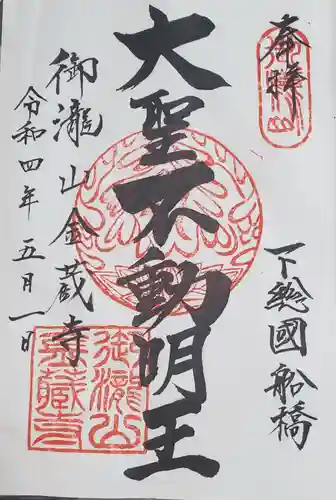 奉拝
下總國船橋
大聖不動明王
御瀧山金蔵寺
令和四年五月一日
御瀧山
金藏寺